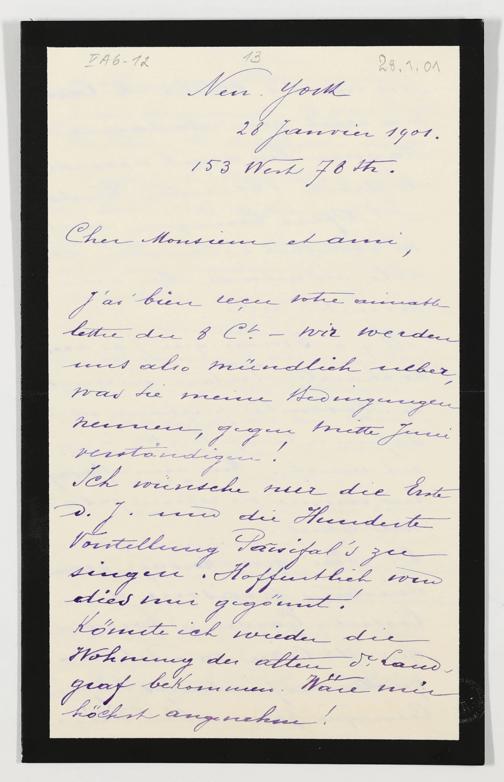 VA6-12
13
28.1.01
New-York
28 Janvier 1901.
153 West 78 Str.
Cher Monsieur et ami,
J'ai bien reçu votre aimable
lettre du 8 Ct. – Wir werden
uns also mündlich ueber,
was Sie meine Bedingungen
nennen, gegen Mitte Juni
verständigen!
Ich wünsche nur die Erste
d. J. und die Hunderte
Vorstellung Parsifal's zu
singen. Hoffentlich wird
dies mir gegönnt!
Könnte ich wieder die
Wohnung der alten Dr. Land-
graf bekommen. Wäre mir
höchst angenehm!